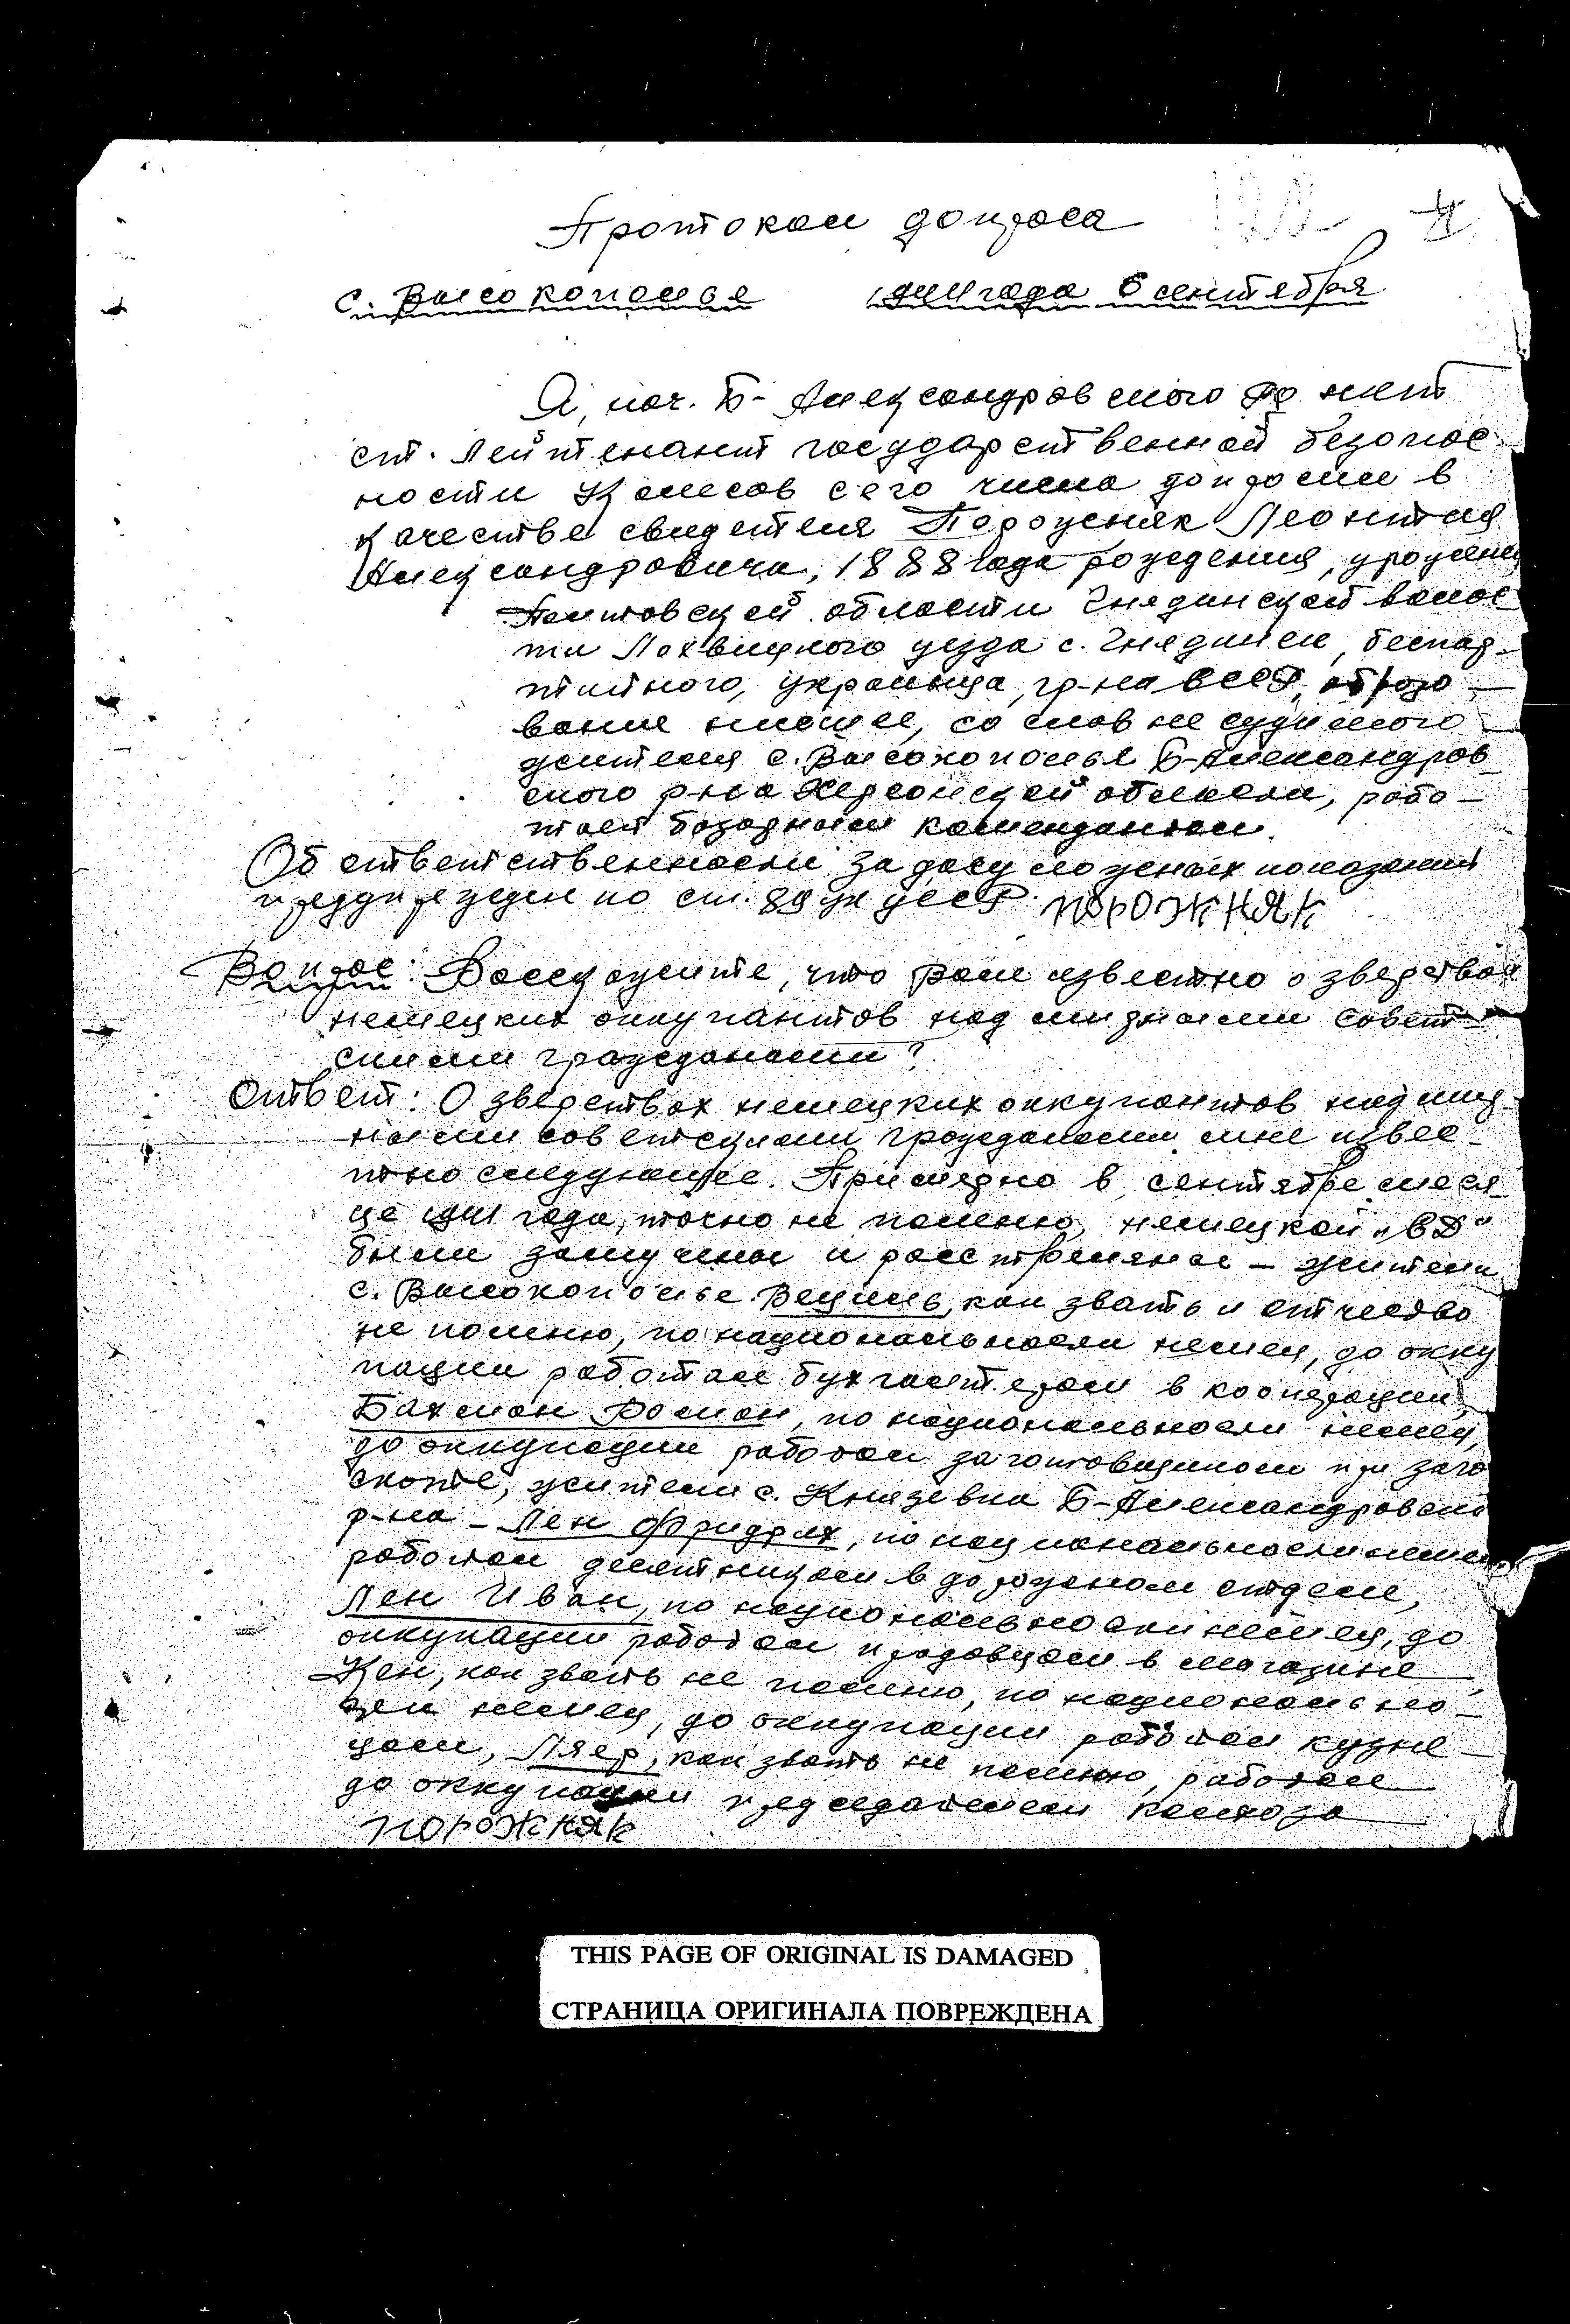 Протокол допроса
с. Высокополье 1944 года 6 сентября
Я, нач. Б-Александровского РО НКГБ
ст. лейтенант государственной безопас
ности сего числа допросил в
качестве свидетеля Порожняк Леонтия
Александровича, 1888 года рождения, урожен
Полтавской области Гнединской волос
ти Лохвицкого уезда с. Гнединск, беспар-
тийного, украинца, гр-на СССР, образо-
вание низшее, со слов не судимого
жителя с. Высокополье Б-Александров
ского р-на Херсонской области, рабо-
тает базарным комендантом.
Об ответственности за дачу ложных показаний
предупрежден по ст. 89 ук УССР. ПОРОЖНЯК
Вопрос: Расскажите, что Вам известно о зверствах
немецких оккупантов над мирными совет
скими гражданами?
Ответ: О зверствах немецких оккупантов над мир
ными советскими гражданами мне извес-
тно следующее. Примерно в сентябре меся
це 1941 года, точно не помню, немецкой „СД"
были замучены и расстреляны - жители
с. Высокополье как звать и отчество
не помню, по национальности немец, до окку
пации работал бухгалтером в кооперации,
Бахман Роман, по национальности немец,
до оккупации работал заготовщиком при заго
скоте, жители с. Князевка Б-Александровско
р-на - Лен Фридрих, по национальности немец
работал десятником в дорожном отделе,
Лен Иван, по национальности немец, до
оккупации работал продавцом в магазине,
Кен, как звать не помню, по национально-
сти немец, до оккупации работал кузне-
цом, Ляер, как звать не помню, работал
до оккупации председателем колхоза
ПОРОЖНЯК
THIS PAGE OF ORIGINAL IS DAMAGED
СТРАНИЦА ОРИГИНАЛА ПОВРЕЖДЕНА